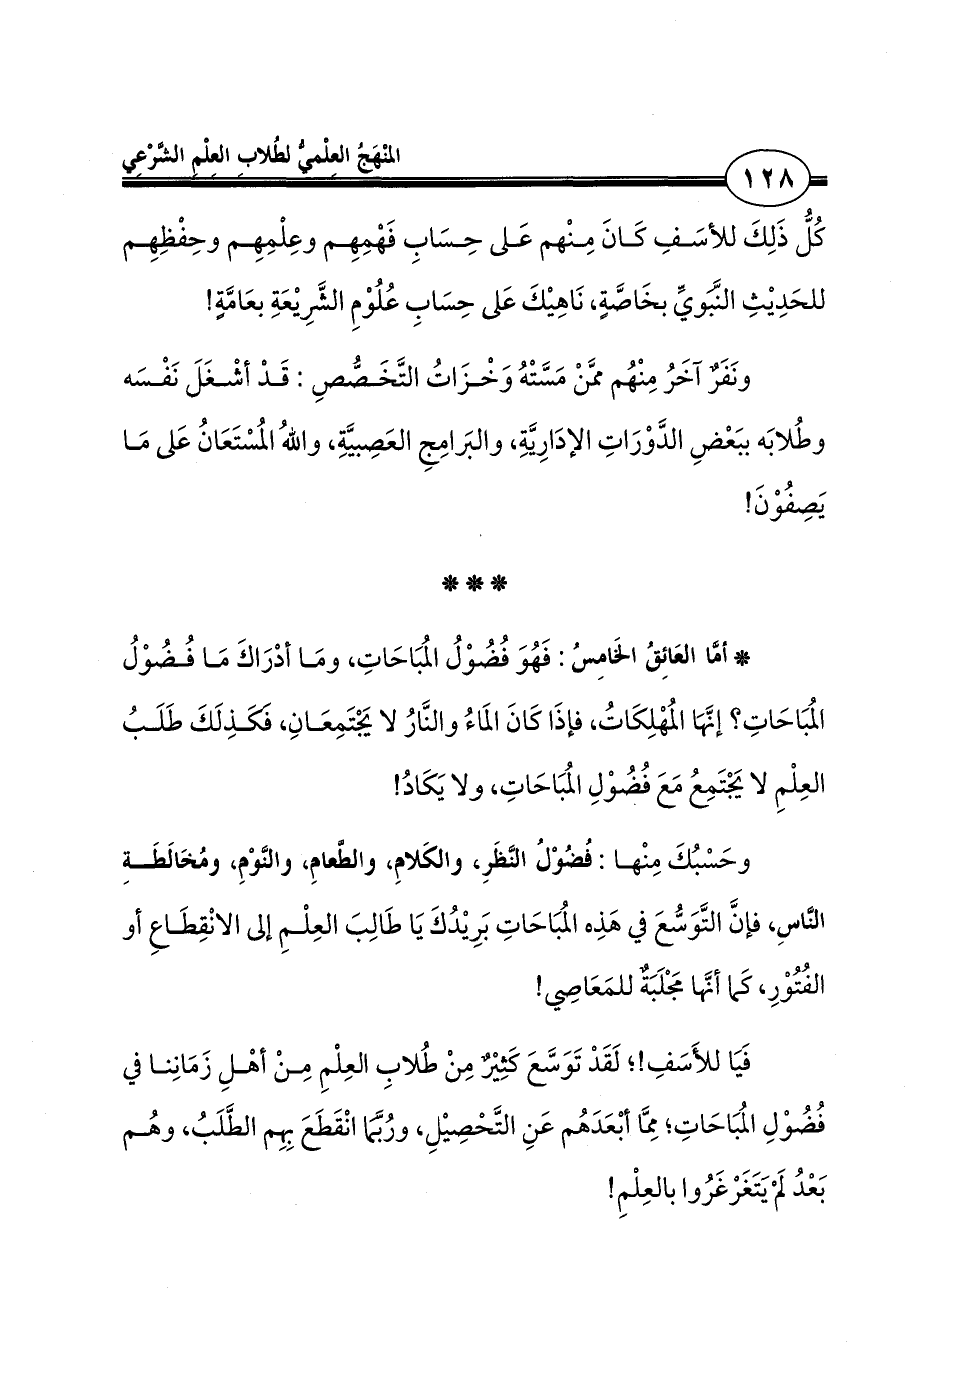 المَنْهَجُ العِلْميُّ لطُلابِ العِلْمِ الشَّرْعِي
١٢٨
كُلُّ ذَلِكَ للأسَفِ كَانَ مِنْهم عَلى حِسَابِ فَهْمِهِم وعِلْمِهِم وحِفْظِهِم
للحَدِيْثِ النَّبَويِّ بخَاصَّةٍ، نَاهِيْكَ عَلى حِسَابِ عُلُوْمِ الشَّرِيْعَةِ بعَامَّةٍ!
ونَفَرٌ آخَرُ مِنْهُم ممَّنْ مَسَّتْهُ وَخْزَاتُ التَّخَصُّصِ : قَدْ أشْغَلَ نَفْسَه
وطُلابَه ببَعْضِ الدَّوْرَاتِ الإدَارِيَّةِ، والبَرامِجِ العَصَبِيَّةِ، واللهُ المُسْتَعَانُ عَلى مَا
يَصِفُوْنَ!
* * *
* أمَّا العَائِقُ الخَامِسُ : فَهُوَ فُضُوْلُ المُبَاحَاتِ، ومَا أدْرَاكَ مَا فُضُوْلُ
المُبَاحَاتِ؟ إنَّهَا المُهْلِكَاتُ، فإذَا كَانَ المَاءُ والنَّارُ لا يَجْتَمِعَانِ، فَكَذِلَكَ طَلَبُ
العِلْمِ لا يَجْتَمِعُ مَعَ فُضُوْلِ المُبَاحَاتِ، ولا يَكَادُ!
وحَسْبُكَ مِنْها : فُضُوْلُ النَّظَرِ، والكَلامِ، والطَّعامِ، والنَّوْمِ، ومُخَالَطَةِ
النَّاسِ، فإنَّ التَّوَسُّعَ في هَذِه المُبَاحَاتِ بَرِيْدُكَ يَا طَالِبَ العِلْمِ إلى الانْقِطَاعِ أو
الفُتُوْرِ، كَما أنَّها مَجْلَبَةٌ للمَعَاصِي!
فَيَا للأَسَفِ!؛ لَقَدْ تَوَسَّعَ كَثِيْرٌ مِنْ طُلابِ العِلْمِ مِنْ أهْلِ زَمَانِنا في
فُضُوْلِ المُبَاحَاتِ؛ ممَّا أبْعَدَهُم عَنِ التَّحْصِيْلِ، ورُبَّما انْقَطَعَ بِهِم الطَّلَبُ، وهُم
بَعْدُ لَمْ يَتَغَرْغَرُوا بالعِلْمِ!